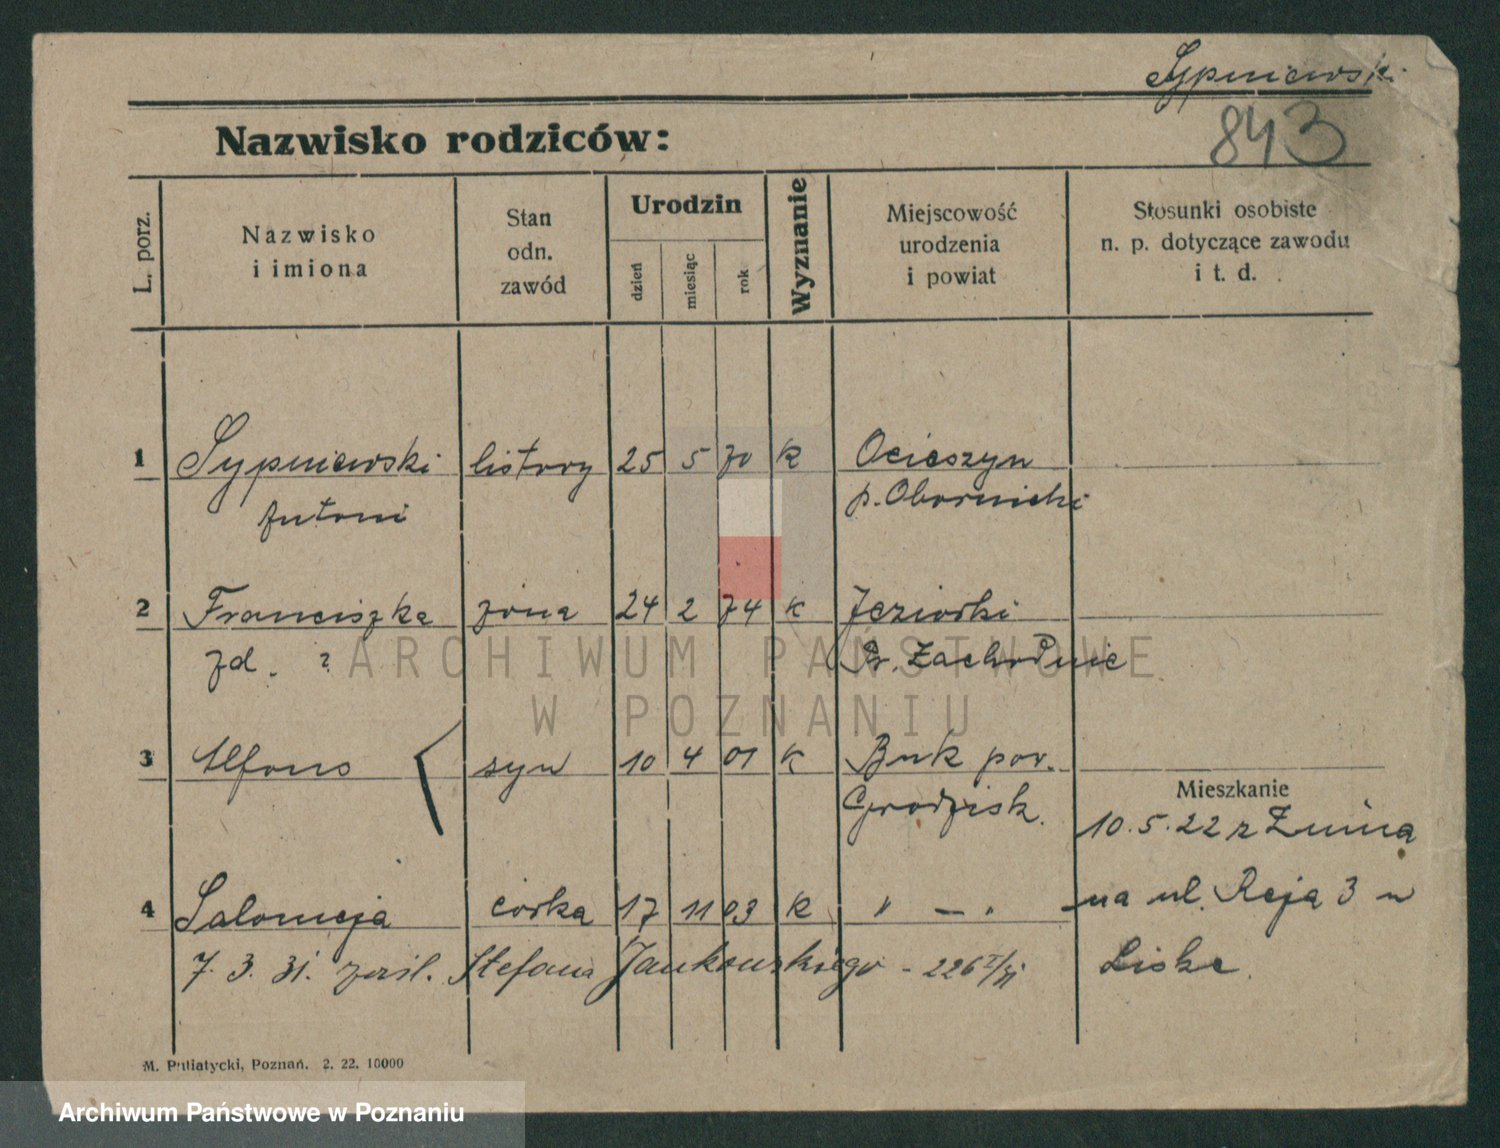 Sypniewski
843
Nazwisko rodziców:
L. porz.
Nazwisko i imiona
Stan odn. zawód
Urodzin
dzień
miesiąc
rok
Wyznanie
Miejscowość urodzenia i powiat
Stosunki osobiste n. p. dotyczące zawodu i t. d.
1 Sypniewski listowy 25 5 70 k Ocieszyn
Antoni p. Obornicki
2 Franciszka żona 24 2 74 k Jeziorki
zd. ? Pr. Zachodnie
3 Alfons syn 10 4 01 k Buk pow.
Grodzisk.
Mieszkanie
10.5.22 z Żnina
4 Salomeja córka 17 11 03 k " — " na ul. Reja 3 u
7. 3. 31. zaśl. Stefana Jankowskiego - 226
Liske.
M. Putiatycki, Poznań. 2. 22. 10000
ARCHIWUM PAŃSTWOWE
W POZNANIU
Archiwum Państwowe w Poznaniu